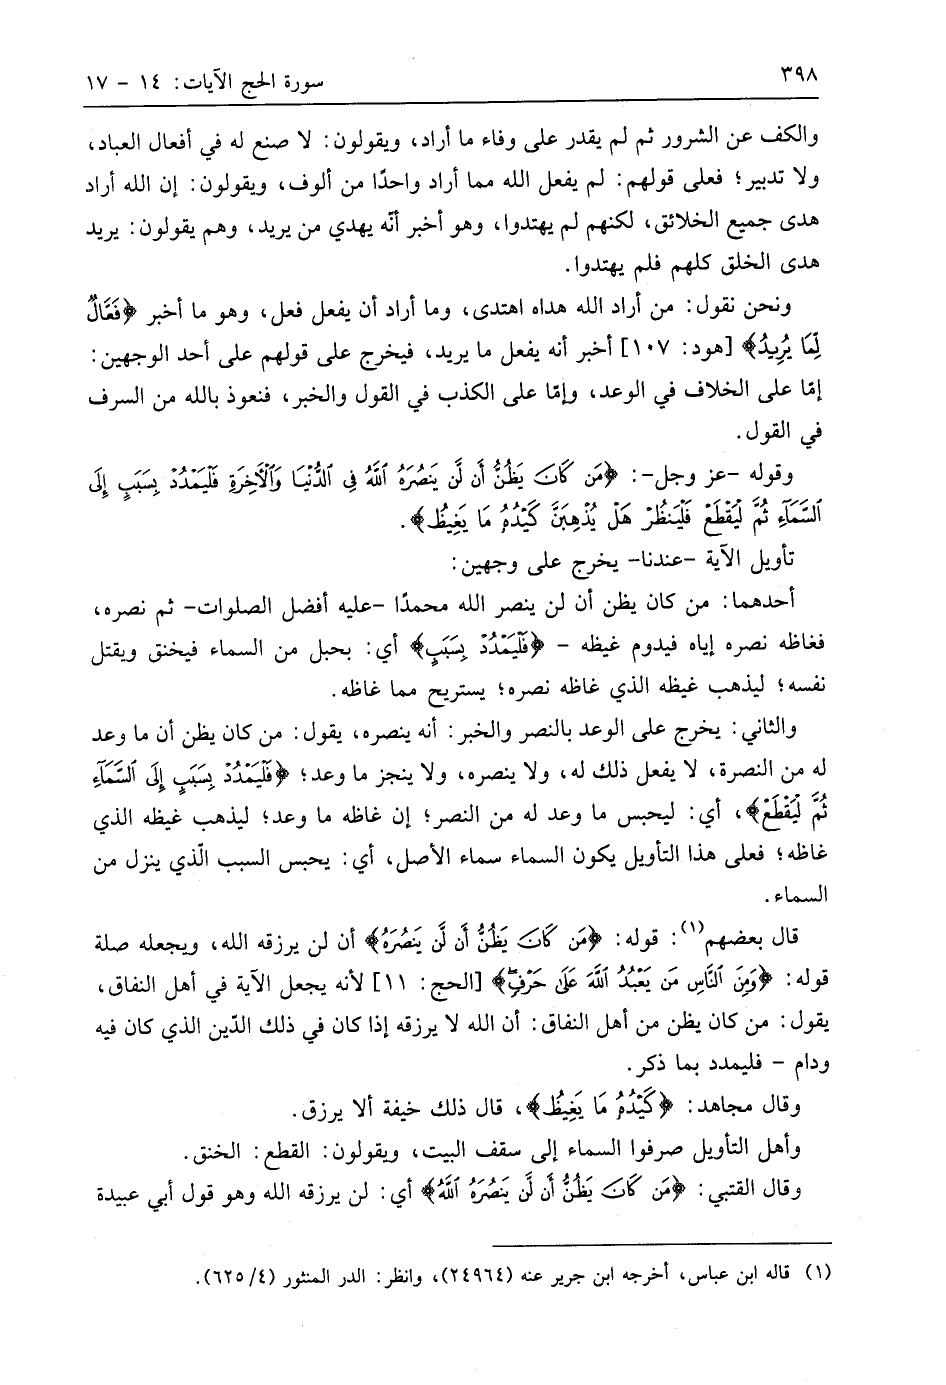 ٣٩٨
سورة الحج الآيات: ١٤ - ١٧
والكف عن الشرور ثم لم يقدر على وفاء ما أراد، ويقولون: لا صنع له في أفعال العباد،
ولا تدبير؛ فعلى قولهم: لم يفعل الله مما أراد واحدًا من ألوف، ويقولون: إن الله أراد
هدى جميع الخلائق، لكنهم لم يهتدوا، وهو أخبر أنّه يهدي من يريد، وهم يقولون: يريد
هدى الخلق كلهم فلم يهتدوا.
ونحن نقول: من أراد الله هداه اهتدى، وما أراد أن يفعل فعل، وهو ما أخبر ﴿فَعَّالٌ
لِّمَا يُرِيدُ﴾ [هود: ١٠٧] أخبر أنه يفعل ما يريد، فيخرج على قولهم على أحد الوجهين:
إمّا على الخلاف في الوعد، وإمّا على الكذب في القول والخبر، فنعوذ بالله من السرف
في القول.
وقوله -عز وجل-: ﴿مَن كَانَ يَظُنُّ أَن لَّن يَنصُرَهُ ٱللَّهُ فِى ٱلدُّنْيَا وَٱلْأَخِرَةِ فَلْيَمْدُدْ بِسَبَبٍ إِلَى
ٱلسَّمَآءِ ثُمَّ لْيَقْطَعْ فَلْيَنظُرْ هَلْ يُذْهِبَنَّ كَيْدُهُ مَا يَغِيظُ﴾.
تأويل الآية -عندنا- يخرج على وجهين:
أحدهما: من كان يظن أن لن ينصر الله محمدًا -عليه أفضل الصلوات- ثم نصره،
فغاظه نصره إياه فيدوم غيظه - ﴿فَلْيَمْدُدْ بِسَبَبٍ﴾ أي: بحبل من السماء فيخنق ويقتل
نفسه؛ ليذهب غيظه الذي غاظه نصره؛ يستريح مما غاظه.
والثاني: يخرج على الوعد بالنصر والخبر: أنه ينصره، يقول: من كان يظن أن ما وعد
له من النصرة، لا يفعل ذلك له، ولا ينصره، ولا ينجز ما وعد؛ ﴿فَلْيَمْدُدْ بِسَبَبٍ إِلَى ٱلسَّمَآءِ
ثُمَّ لْيَقْطَعْ﴾، أي: ليحبس ما وعد له من النصر؛ إن غاظه ما وعد؛ ليذهب غيظه الذي
غاظه؛ فعلى هذا التأويل يكون السماء سماء الأصل، أي: يحبس السبب الّذي ينزل من
السماء.
قال بعضهم(١): قوله: ﴿مَن كَانَ يَظُنُّ أَن لَّن يَنصُرَهُ﴾ أن لن يرزقه الله، ويجعله صلة
قوله: ﴿وَمِنَ ٱلنَّاسِ مَن يَعْبُدُ ٱللَّهَ عَلَىٰ حَرْفٍۖ﴾ [الحج: ١١] لأنه يجعل الآية في أهل النفاق،
يقول: من كان يظن من أهل النفاق: أن الله لا يرزقه إذا كان في ذلك الدّين الذي كان فيه
ودام - فليمدد بما ذكر.
وقال مجاهد: ﴿كَيْدُهُ مَا يَغِيظُ﴾، قال ذلك خيفة ألا يرزق.
وأهل التأويل صرفوا السماء إلى سقف البيت، ويقولون: القطع: الخنق.
وقال القتبي: ﴿مَن كَانَ يَظُنُّ أَن لَّن يَنصُرَهُ ٱللَّهُ﴾ أي: لن يرزقه الله وهو قول أبي عبيدة
(١) قاله ابن عباس، أخرجه ابن جرير عنه (٢٤٩٦٤)، وانظر: الدر المنثور (٤/ ٦٢٥).